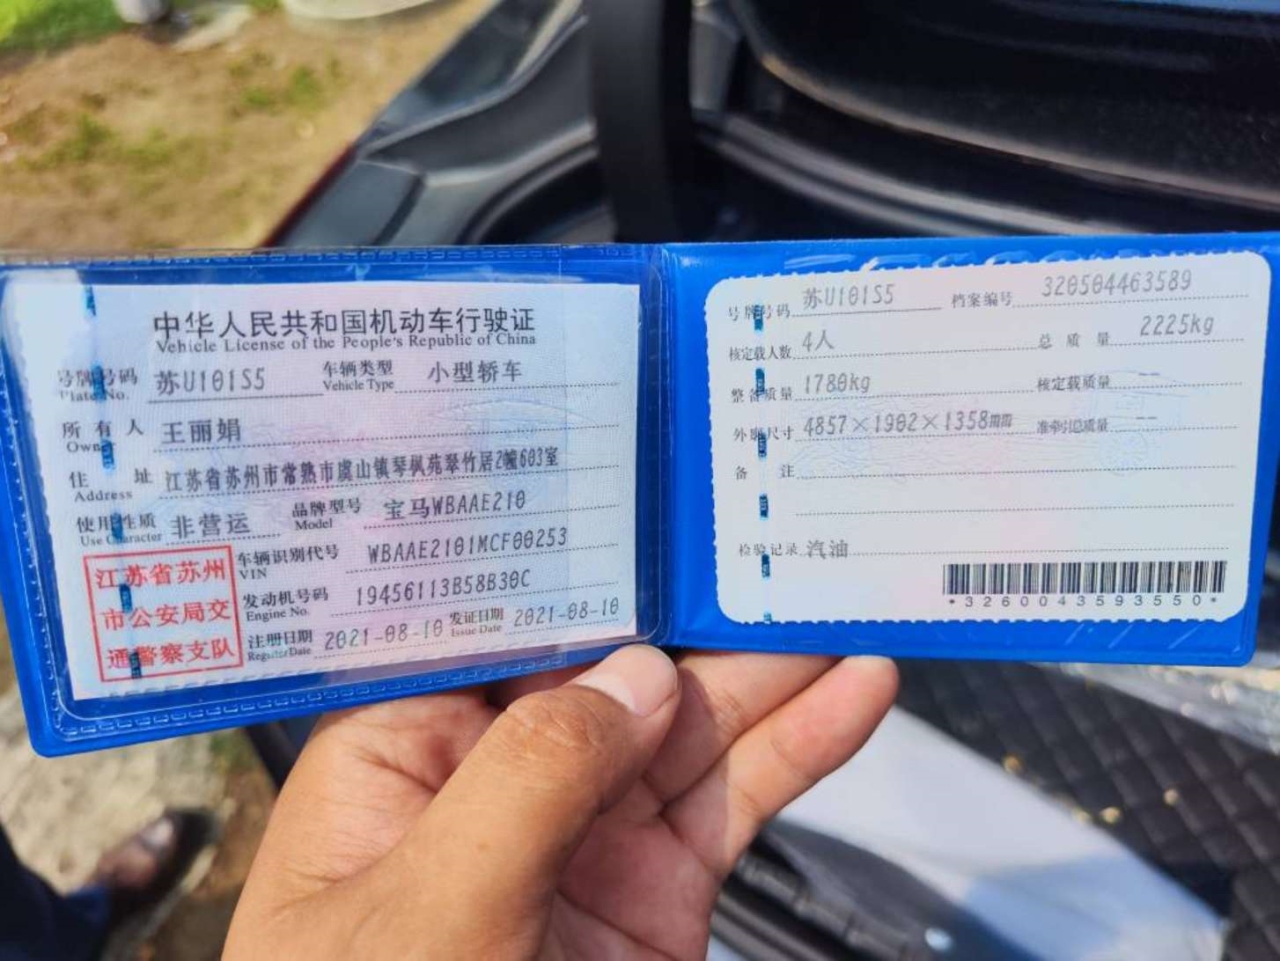 中华人民共和国机动车行驶证
Vehicle License of the People's Republic of China
号牌号码 苏U101S5 车辆类型 小型轿车
Plate No. Vehicle Type
所有人 王丽娟
Owner
住址 江苏省苏州市常熟市虞山镇琴枫苑翠竹居2幢603室
Address
使用性质 非营运 品牌型号 宝马WBAAE210
Use Character Model
车辆识别代号 WBAAE2101MCF00253
VIN
发动机号码 19456113B58B30C
Engine No.
注册日期 2021-08-10 发证日期 2021-08-10
Register Date Issue Date
江苏省苏州
市公安局交
通警察支队
号牌号码 苏U101S5 档案编号 320504463589
核定载人数 4人 总质量 2225kg
整备质量 1780kg 核定载质量 --
外廓尺寸 4857×1902×1358mm 准牵引总质量 --
备注
检验记录 汽油
*3260043593550*